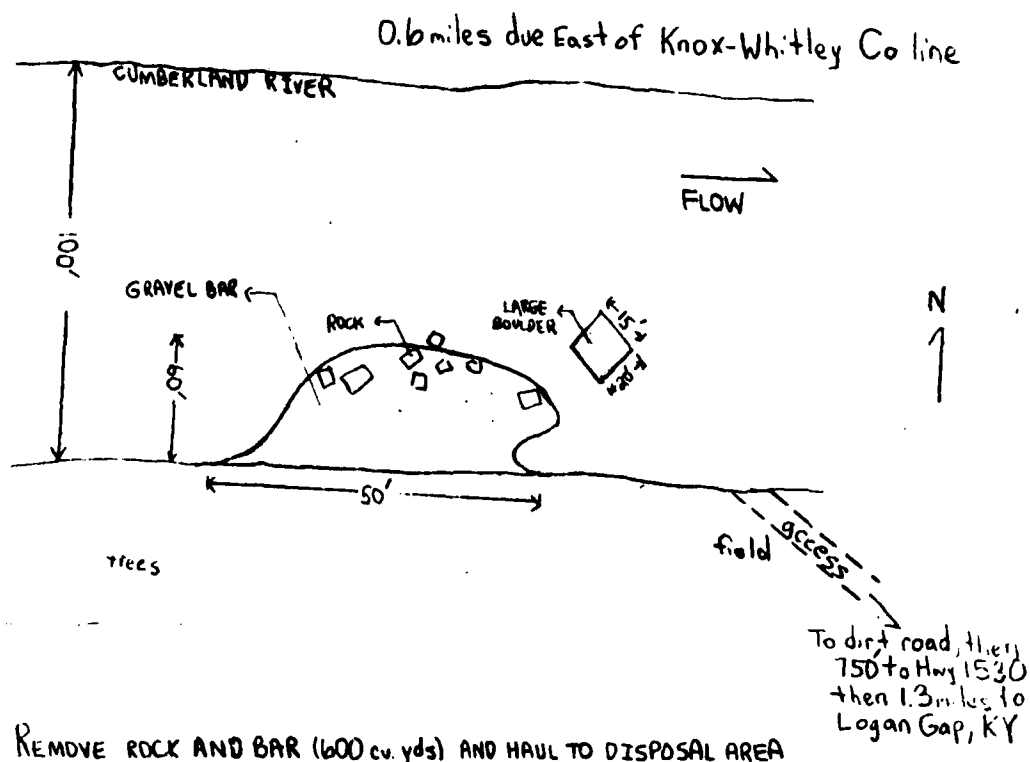 0.6 miles due East of Knox-Whitley Co line
CUMBERLAND RIVER
FLOW
100'
GRAVEL BAR
ROCK
LARGE
BOULDER
15'
20'
N
60'
50'
field
access
trees
To dirt road, then
750' to Hwy 1530
then 1.3 miles to
Logan Gap, KY
REMOVE ROCK AND BAR (600 cu. yds) AND HAUL TO DISPOSAL AREA